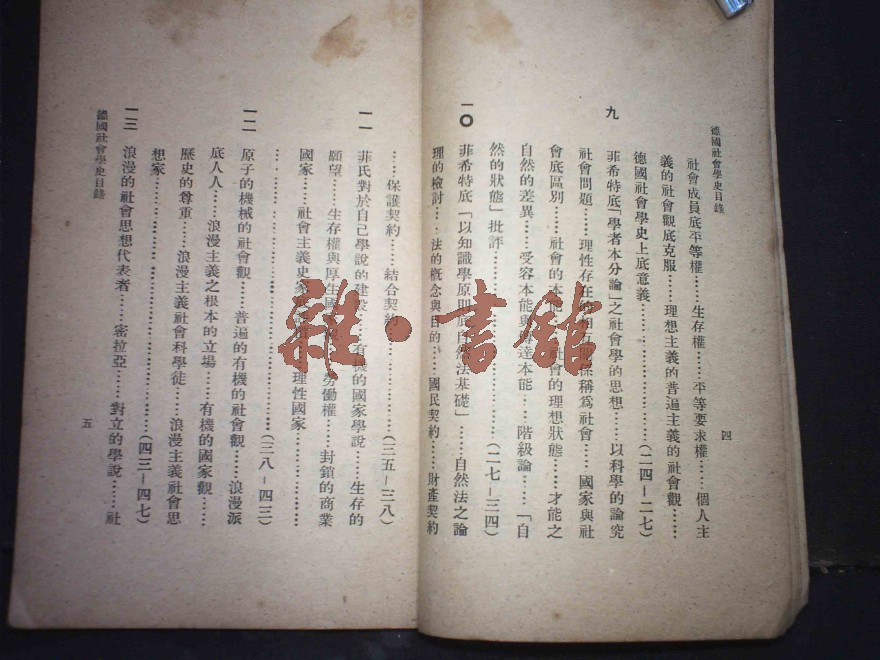 德國社會學史目錄
四
社會成員底平等權……生存權……平等要求權……個人主
義的社會觀底克服……理想主義的普遍主義的社會觀……
德國社會學史上底意義……(二四－二七)
九 菲希特底「學者本分論」之社會學的思想……以科學的論究
社會問題……理性存在的相互關係稱爲社會……國家與社
會底區別……社會的本能……社會的理想狀態……才能之
自然的差異……受容本能與傳達本能……階級論……「自
然的狀態」批評……(二七－三四)
一〇 菲希特底「以知識學原則底自然法基礎」……自然法之論
理的檢討……法的概念與目的……國民契約……財產契約
……保護契約……結合契約……(三五－三八)
一一 菲氏對於自己學說的建設……有機的國家學說……生存的
願望……生存權與厚生國……勞働權……封鎖的商業
國家……社會主義史家……理性國家……
……(三八－四三)
一二 原子的機械的社會觀……普遍的有機的社會觀……浪漫派
底人人……浪漫主義之根本的立場……有機的國家觀……
歷史的尊重……浪漫主義社會科學徒……浪漫主義社會思
想家……(四三－四七)
一三 浪漫的社會思想代表者……密拉亞……對立的學說……社
德國社會學史目錄
五
雜·書館